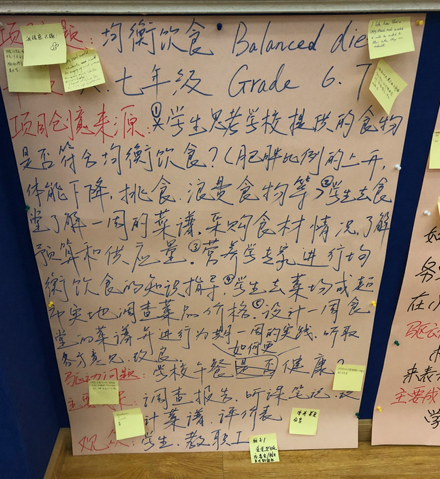 项目主题:均衡饮食 Balanced die
七年级 Grade 6.7
项目创意来源:①学生思考学校提供的食物
是否符合均衡饮食?(肥胖比例的上升,
体能下降,挑食、浪费食物等)②学生去食
堂了解一周的菜谱、采购食材情况,了解
预算和供应量。③营养学专家进行均
衡饮食的知识指导。④学生去菜场或超
市实地调查菜品价格。⑤设计一周食
堂的菜谱并进行为期一周的实践,听取
各方意见,改良。
如何更
驱动问题:学校午餐是否健康?
主要 调查报告、听课笔记、设
计菜谱、评价表
观众:学生、教职工